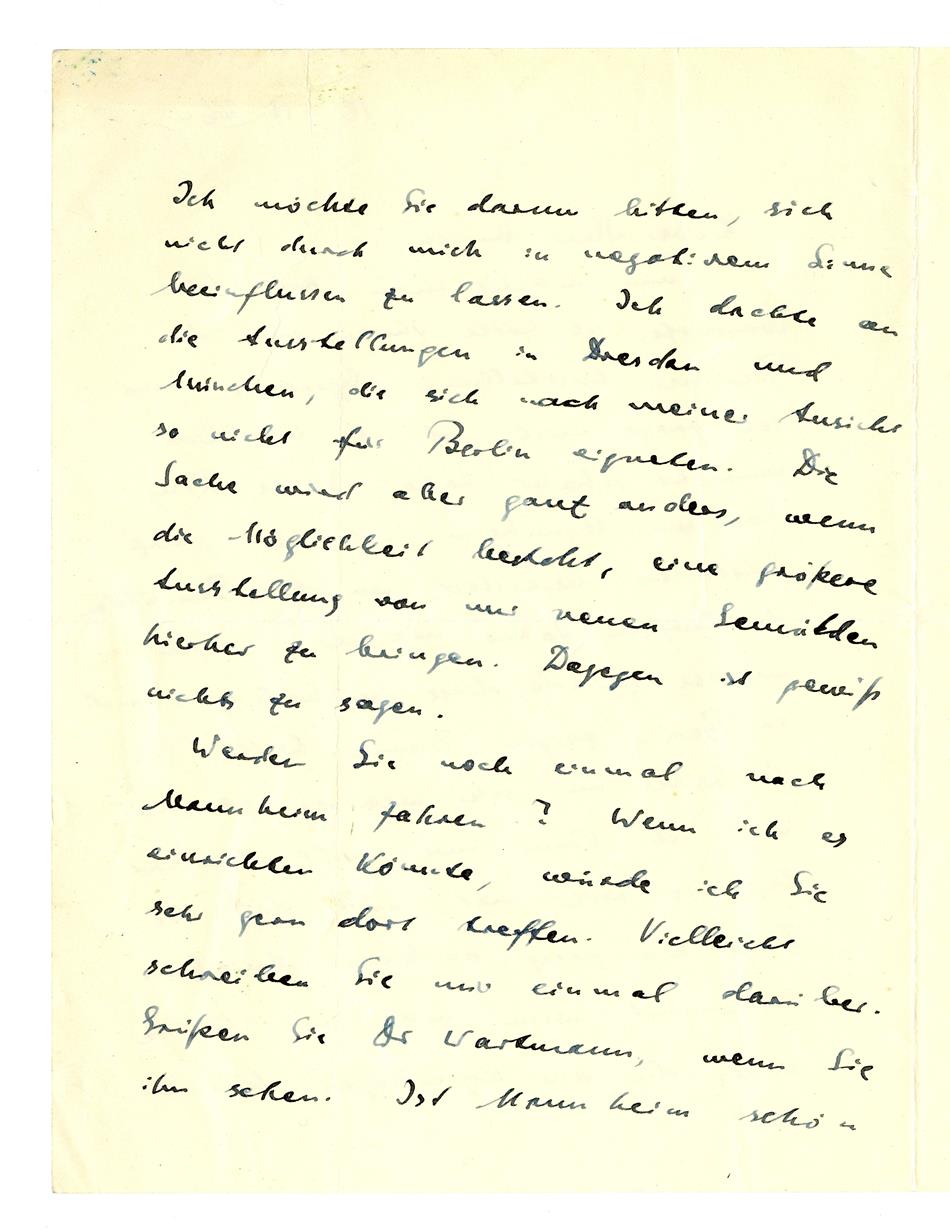 Ich möchte Sie darum bitten, sich
nicht durch mich in negativem Sinne
beeinflussen zu lassen. Ich dachte an
die Ausstellungen in Dresden und
München, die sich nach meiner Ansicht
so nicht für Berlin eigneten. Die
Sache wird aber ganz anders, wenn
die Möglichkeit besteht, eine größere
Ausstellung von nur neuen Gemälden
hierher zu bringen. Dagegen ist gewiß
nichts zu sagen.
Werden Sie noch einmal nach
Mannheim fahren? Wenn ich es
einrichten könnte, würde ich Sie
sehr gern dort treffen. Vielleicht
schreiben Sie mir einmal darüber.
Grüßen Sie Dr Wartmann, wenn Sie
ihn sehen. Ist Mannheim schön